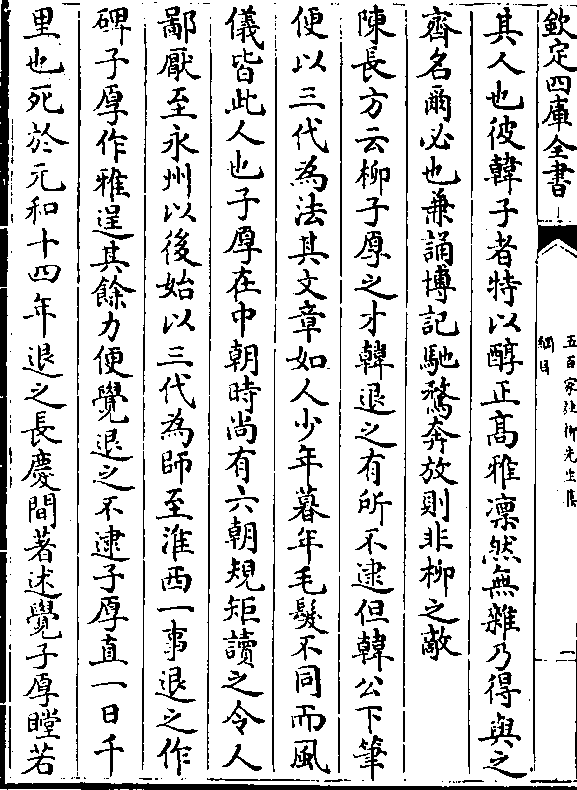 欽定四庫全書
五百家注柳先生集
綱目
一
其人也彼韓子者特以醇正髙雅凛然無雜乃得與之
齊名爾必也兼誦博記馳騖奔放則非柳之敵
陳長方云柳子厚之才韓退之有所不逮但韓公下筆
便以三代為法其文章如人少年暮年毛髮不同而風
儀皆此人也子厚在中朝時尚有六朝規矩讀之令人
鄙厭至永州以後始以三代為師至淮西一事退之作
碑子厚作雅逞其餘力便覺退之不逮子厚直一日千
里也死於元和十四年退之長慶間著述覺子厚瞠若